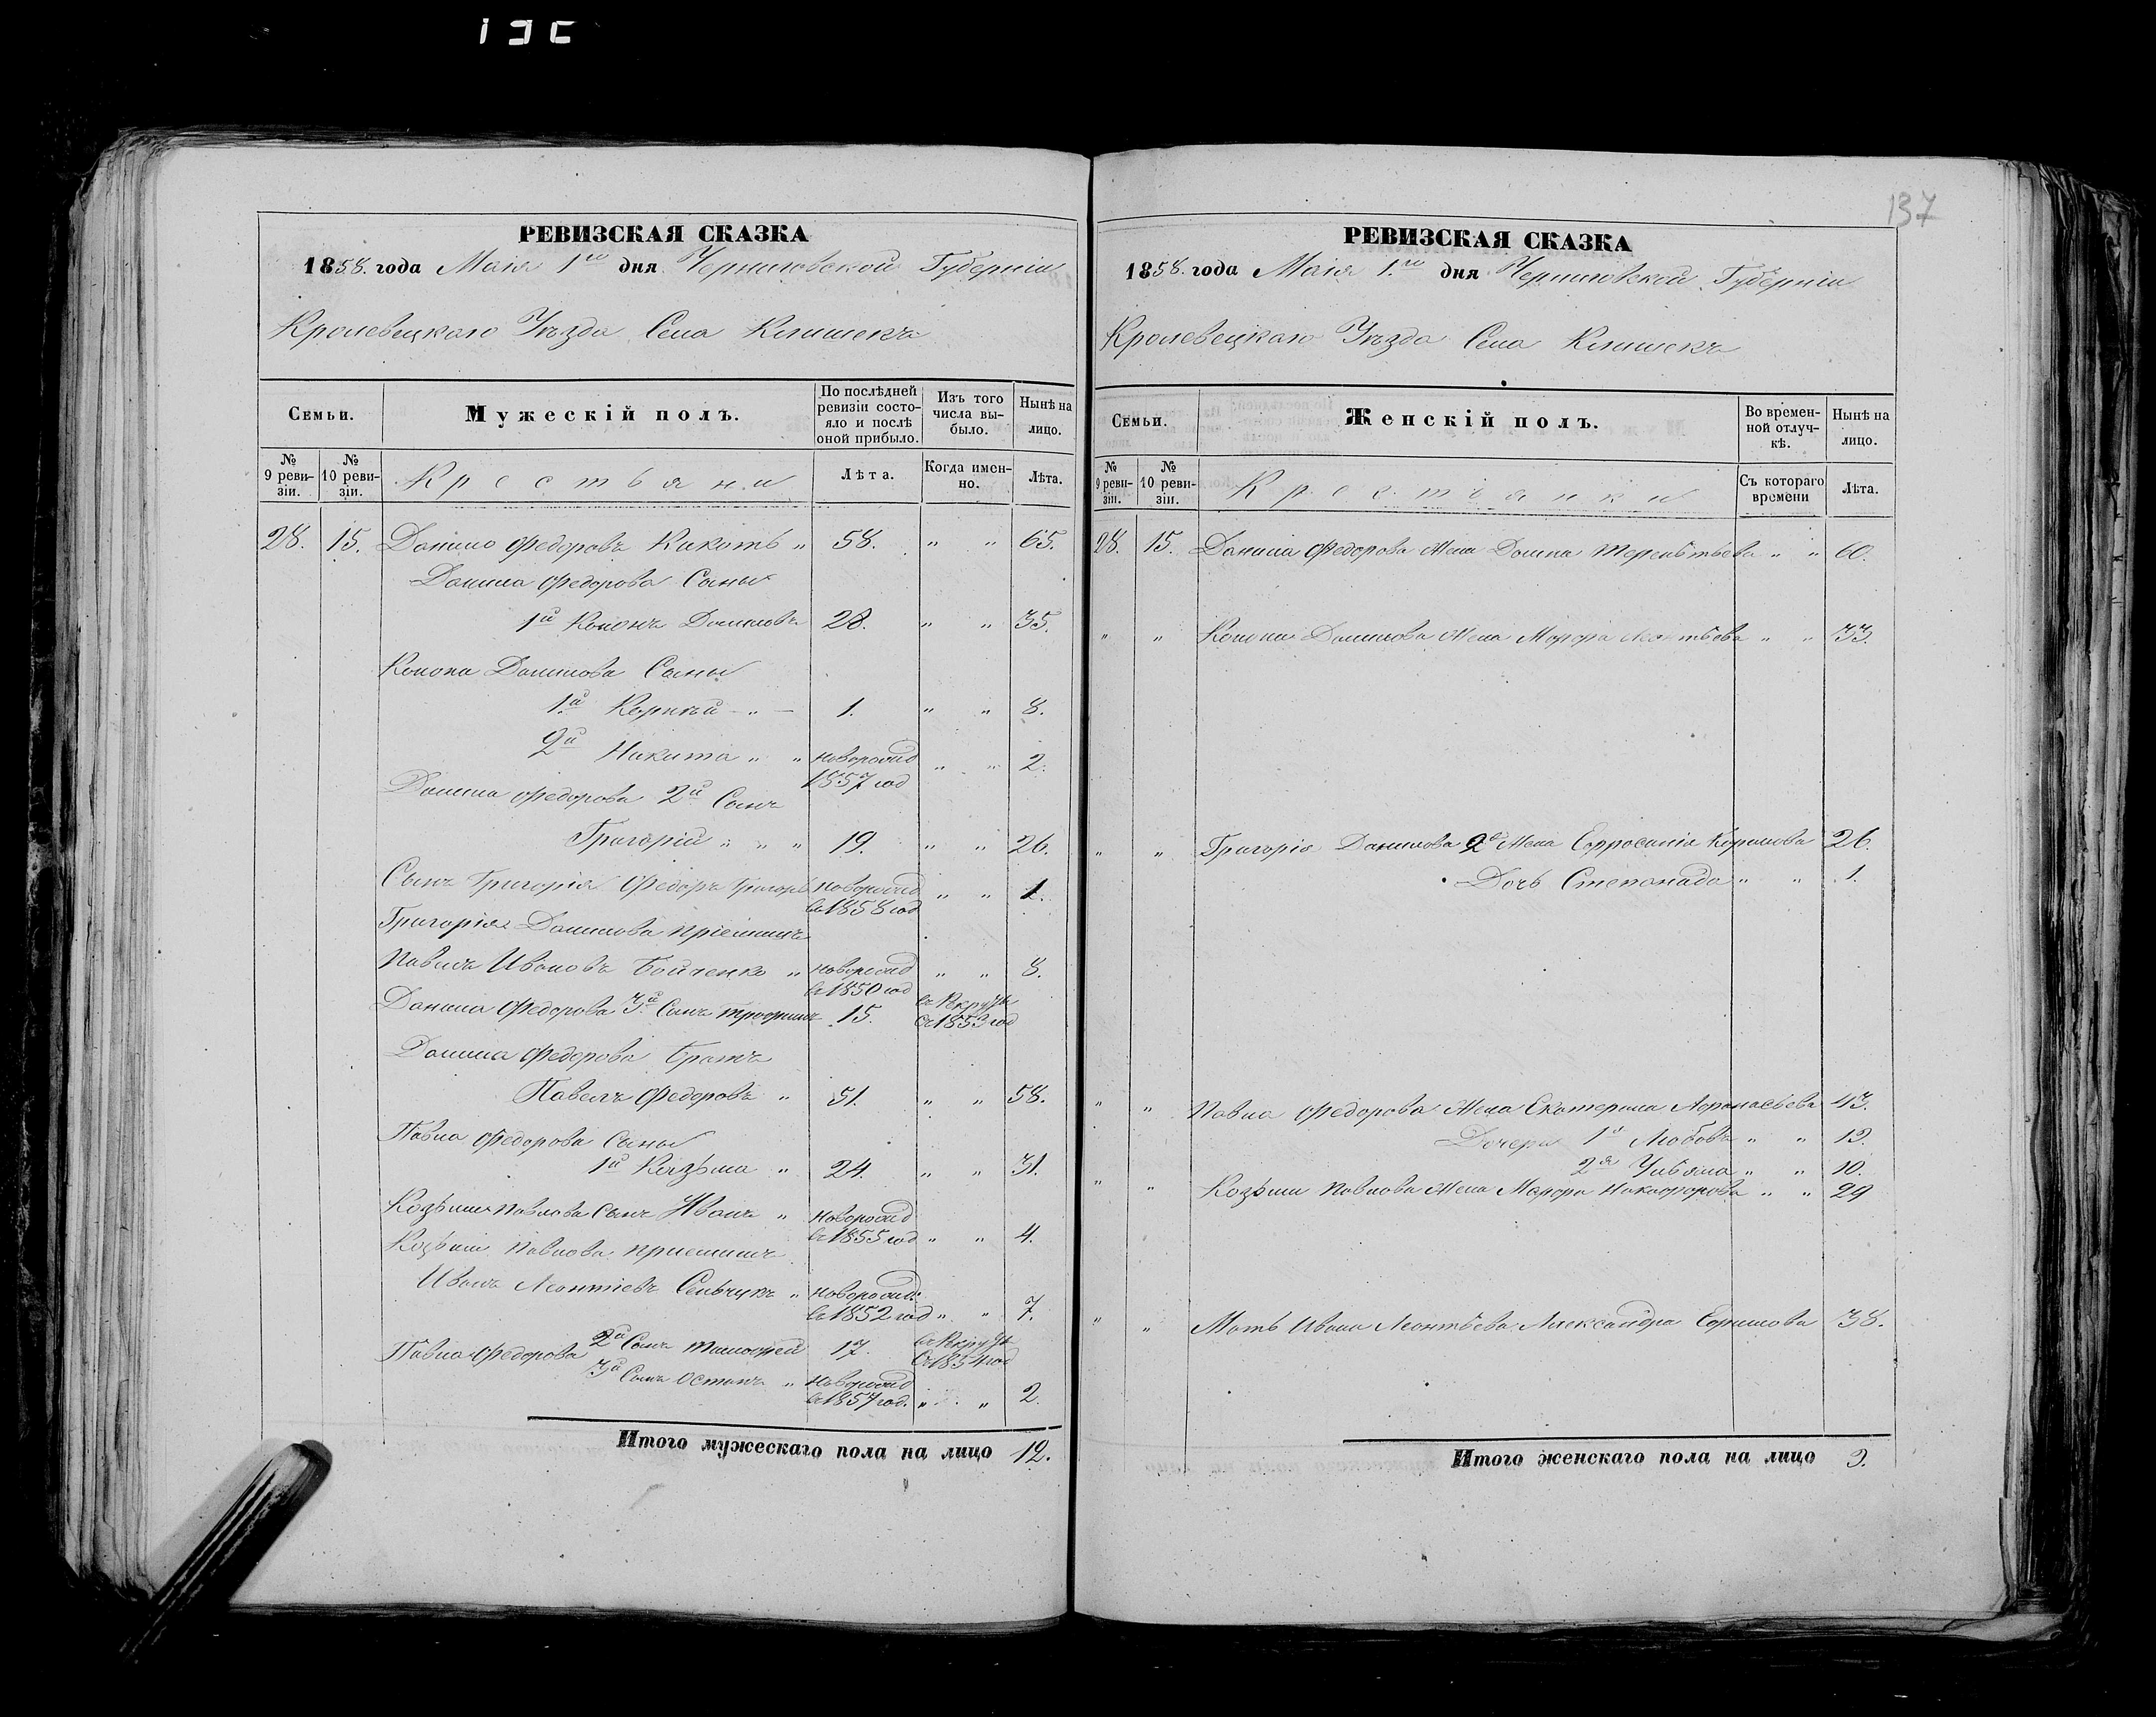 137
РЕВИЗСКАЯ СКАЗКА
1858. года Маія 1го дня Черниговской Губерніи
Кролевецкаго Уѣзда Села Клишекъ
Семьи.
Мужескій полъ.
По послѣдней ревизіи состо-
яло и послѣ
оной прибыло.
Изъ того
числа вы-
было.
Нынѣ на
лицо.
№
9 реви-
зіи.
№
10 реви-
зіи.
Крестьяни
Лѣта.
Когда имен-
но.
Лѣта.
28. 15. Данило Федоровъ Кикоть " 58. " " 65.
Данила Федорова Сыны
1й Кононъ Даниловъ 28. " " 35.
Конона Данилова Сыны
1й Корнѣй - " - 1. " " 8.
2й Никита " " новорожд 1857 год " " 2.
Данила Федорова 2й Сынъ
Григорій " " " 19. " " 26.
Сынъ Григорія Федоръ новорожд
въ 1858 год " " 1.
Григорія Данилова пріемышъ
Павелъ Ивановъ Бойченко " новорожд
въ 1850 год " " 8.
Данила Федорова 3й Сынъ Трофимъ 15. въ Рекруты
въ 1853 год
Данила Федорова Братъ
Павелъ Федоровъ " 51. " " 58.
Павла Федорова Сыны
1й Козьма " 24. " " 31.
Козьмы Павлова Сынъ Иванъ " новорожд
въ 1855 год " " 4.
Козьмы Павлова приемышъ
Иванъ Леонтіевъ " новорожд:
въ 1852 год " " 7.
Павла Федорова 2й Сынъ Тимофей 17. въ Рекруты
въ 1854 год
3й Сынъ Остапъ " новорожд
въ 1857 год. " " 2.
Итого мужескаго пола на лицо 12.
РЕВИЗСКАЯ СКАЗКА
1858. года Маія 1.го дня Черниговской Губерніи
Кролевецкаго Уѣзда Села Клишекъ
Семьи.
Женскій полъ.
Во времен-
ной отлуч-
кѣ.
Нынѣ на
лицо.
№
9 реви-
зіи.
№
10 реви-
зіи.
Крестьянки
Съ котораго
времени
Лѣта.
28. 15. Данила Федорова Жена Домна Терентьева " " 60.
" " Конона Данилова Жена Марфа Леонтьева " " 33.
" " Григорія Данилова 2я Жена Евфросинія 26.
Дочь Степанида " " 1.
" " Павла Федорова Жена Екатерина Афанасьева 43.
Дочери 1я Любовь " "
2я Ульяна " " 10.
" " Козьмы Павлова Жена Марфа Никифорова " " 29
" " Мать Ивана Леонтьева Александра Ефимова 38.
Итого женскаго пола на лицо 9.